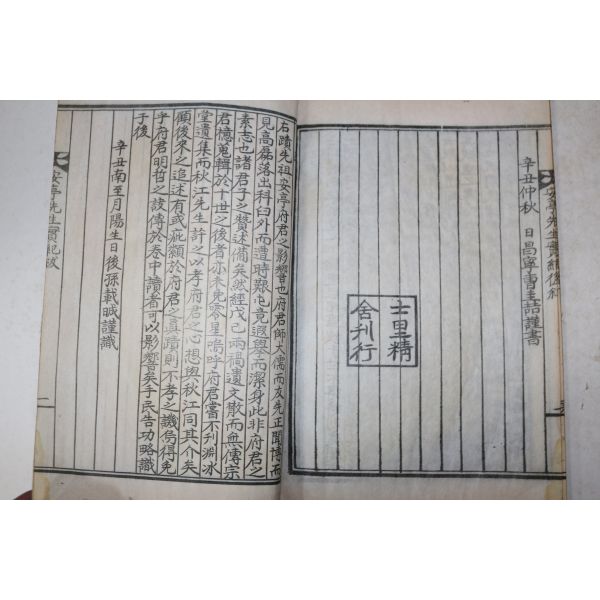 辛丑仲秋 日昌寧曺圭喆謹書
士里精
舍刊行
右蹟先祖安亭府君之影響也府君師大儒而友先正聞博而
見高磊落出科臼外而遭時艱屯竟遐擧而潔身此非府君之
素志也諸君子之贊述備矣然經戊己兩禍遺文散而無傳宗
君檍蒐輯於十世之後者亦未免零星嗚呼府君嘗不刊淵冰
堂遺集而秋江先生許之以孝府君之心想與秋江同其介矣
顧後來之追述有或疵纇於府君之眞蹟則不孝之譏烏得免
乎府君明哲之譏傳於卷中讀者可以影響矣手民告功略識
于後
辛丑南至月陽生日後孫載 謹識
安亭先生實紀跋
二